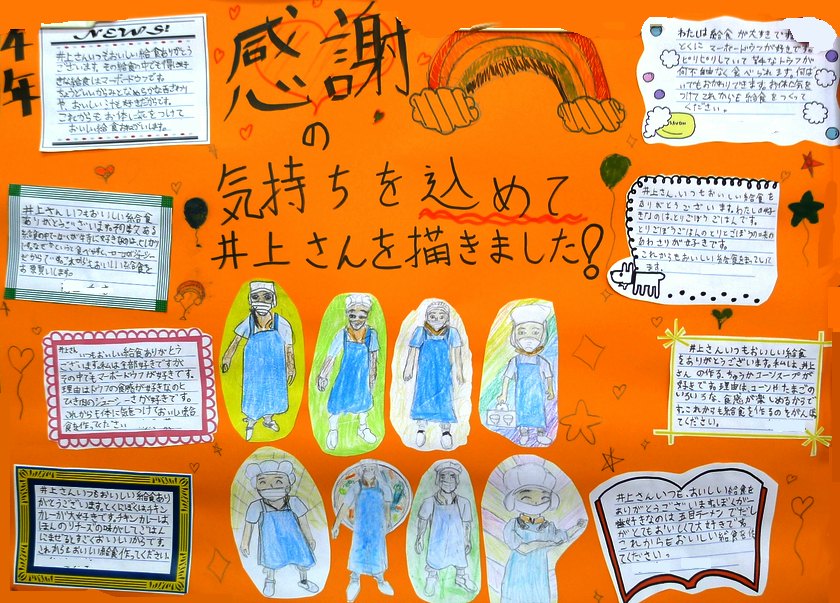 4年
感謝
の
気持ちを込めて
井上さんを描きました!
NEWS!
井上さんいつもおいしい給食ありがとうご
ざいます。その給食の中でも僕の好
きな給食はマーボードウフです。
や、おいしい汁と好きだからです。
これからもお体に気をつけて
おいしい給食おねがいします。
わたしは給食が大すきです。
とくにマーボードウフが好きです。
ピリピリしていて苦手なトウフが
何不自由なく食べられます。何は
いてもおかわりできます。お体に気を
つけてこれからも給食をつくって
ください。
井上さん、いつもおいしい給食
ありがとうございます。
お願いします。
井上さん、いつもおいしい給食を
ありがとうございます。わたしの好
きなのは、とりごぼうごはんです。
とりごぼうごはんのとりとごぼうの味が
あわさりが好きです。
これからもおいしい給食をまっていま
す。
井上さん
いつもおいしい給食ありがとう
ございます。私は全部好きですが、
その中でもマーボードウフが好きです。
理由はトウフの食感が好きなのと
ひき肉のジューシーさが好きです。
これからも体に気をつけておいしい給
食を作ってください
井上さんいつもおいしい給食
をありがとうございます。私は、井上
さんの作る、ちゅうかコーンスープが
好きです。理由はコーンとたまごの
いろいろな、食感が楽しめるからで
す。これからも給食を作るのをがんば
てください。
井上さんいつもおいしい給食あり
がとうございます。とくにぼくはチキン
カレーが大好きです。チキンカレーは
ほんのりチーズの味がしてごはん
にまぜるとすごくおいしいからです。
これからもおいしい給食作ってください。
井上さんいつも、おいしい給食を
ありがとうございます。ぼくが一
番好きなのは五目ラーメンです。だし
がとてもおいしくて大好きです。
これからもおいしい給食を作っ
てください。